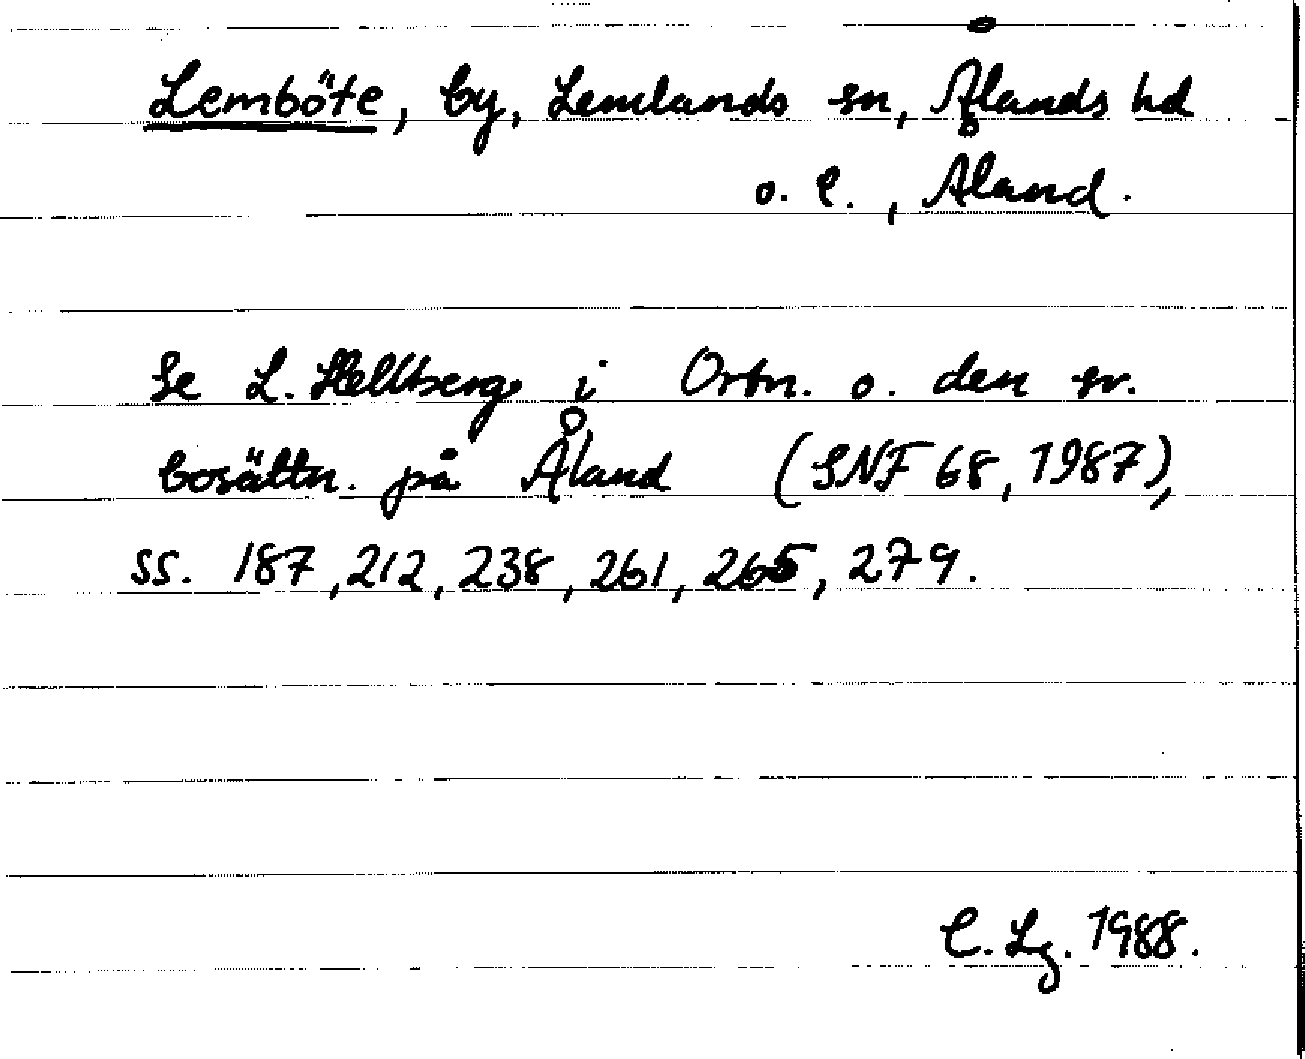 Lemböte, by, Lemlands sn, Ålands hd
o. l., Åland.
Se L. Hellberg i Ortn. o. den sv.
bosättn. på Åland (SNF 68, 1987),
ss. 187, 212, 238, 261, 265, 279.
C. Lg. 1988.